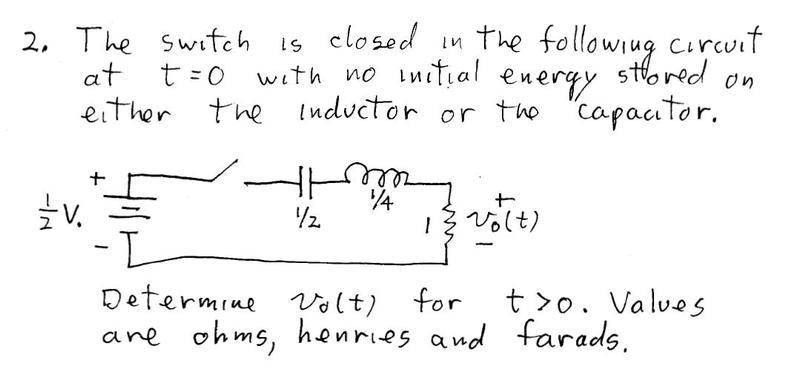 2. The switch is closed in the following circuit
at t=0 with no initial energy stored on
either the inductor or the capacitor.
+
1/2 V.
-
1/2
1/4
1
+
v₀(t)
-
Determine v₀(t) for t>0. Values
are ohms, henries and farads.